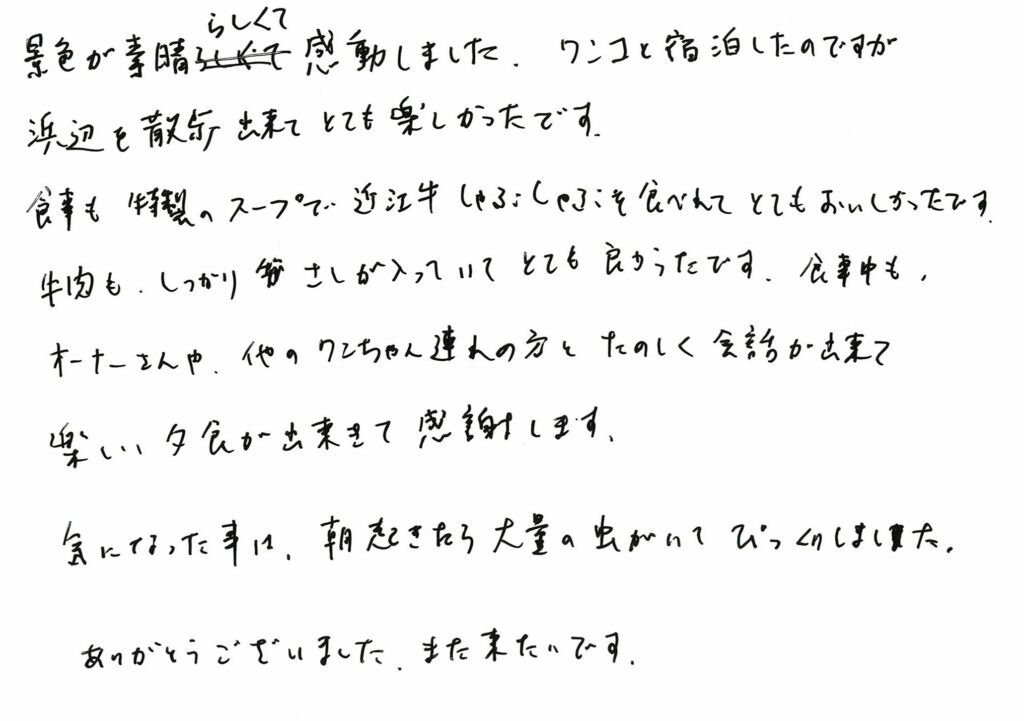 景色が素晴らしくて感動しました。ワンコと宿泊したのですが
浜辺を散歩出来てとても楽しかったです。
食事も特製のスープで近江牛しゃぶしゃぶを食べれてとてもおいしかったです。
牛肉も、しっかりさしが入っていてとても良かったです。食事中も、
オーナーさんや、他のワンちゃん連れの方とたのしく会話が出来て
楽しい夕食が出来きて感謝します。
気になった事は、朝起きたら大量の虫がいてびっくりしました。
ありがとうございました。また来たいです。